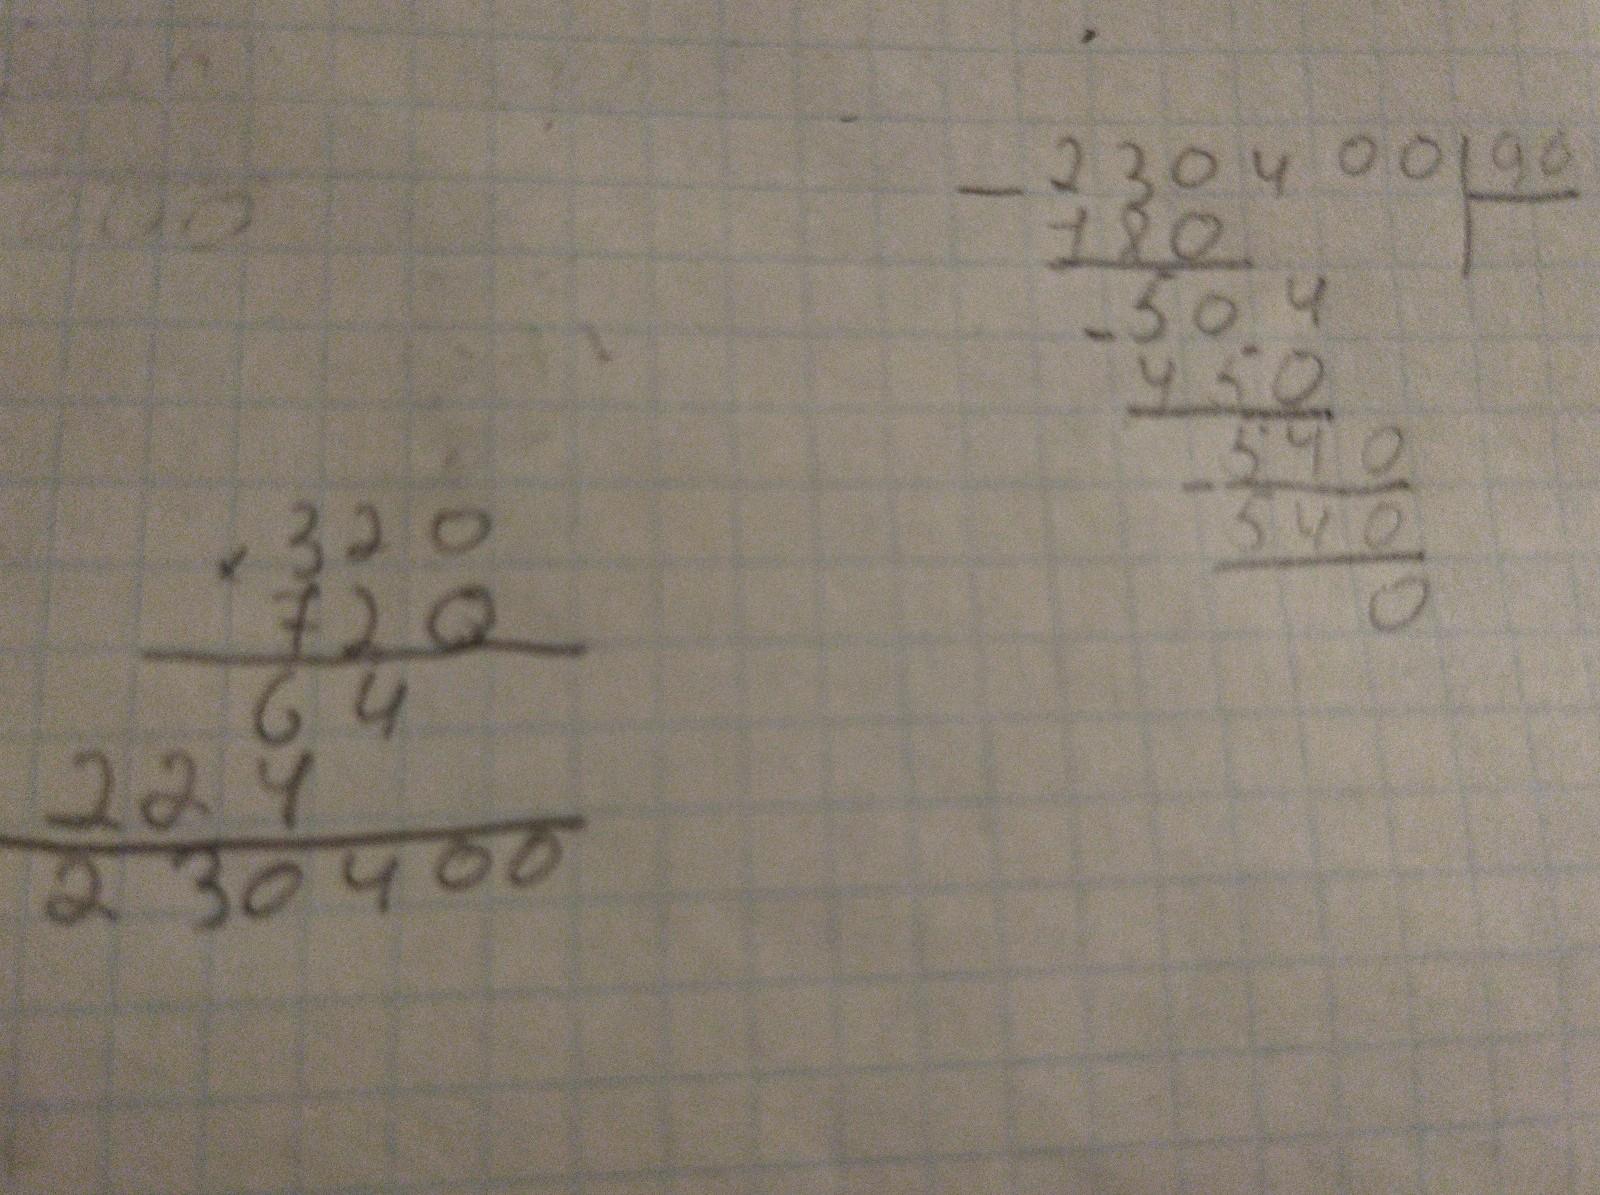 × 320
720
64
224
230400
- 230400 | 90
180
- 504
450
- 540
540
0